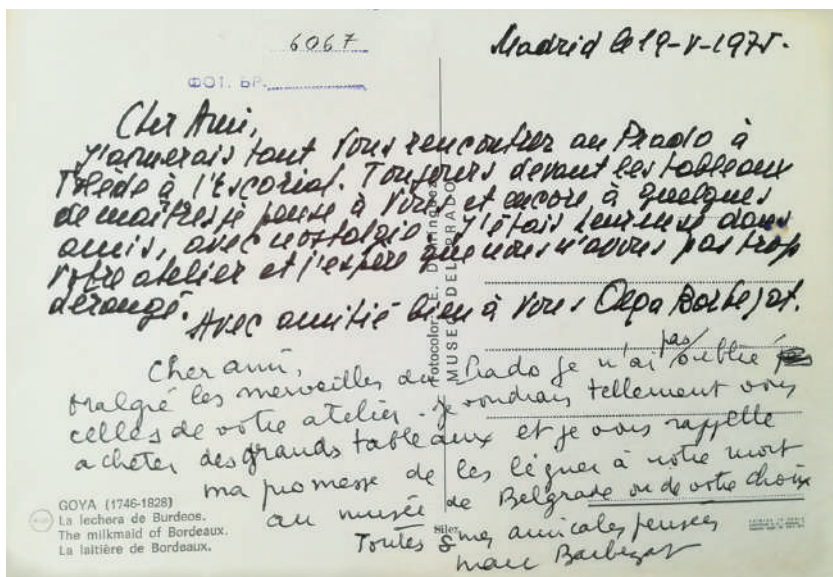 6067
Madrid le 19-V-1975.
ФОТ. БР.
Cher Ami,
J'aimerais tant vous rencontrer au Prado à
Tolède à l'Escorial. Toujours devant les tableaux
de maîtres je pense à vous et encore à quelques
amis, avec nostalgie. J'étais heureuse dans
votre atelier et j'espère que nous n'avons pas trop
dérangé.
Avec amitié bien à vous Olga Barbezat.
Cher ami,
Malgré les merveilles du Prado je n'ai pas oublié
celles de votre atelier. Je voudrais tellement vous
acheter des grands tableaux et je vous rappelle
ma promesse de les léguer à notre mort
au musée de Belgrade ou de votre choix
Toutes mes amicales pensées
Marc Barbezat
GOYA (1746-1828)
La lechera de Burdeos.
The milkmaid of Bordeaux.
La laitière de Bordeaux.
Fotocolor E.
MUSEO DEL PRADO
Silex